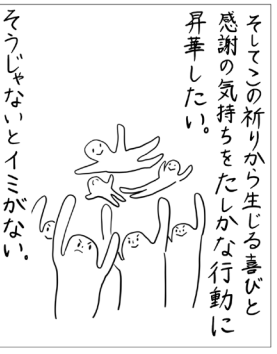 そしてこの祈りから生じる喜びと
感謝の気持ちをたしかな行動に
昇華したい。
そうじゃないとイミがない。